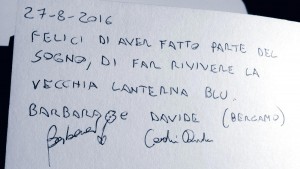 27-8-2016
FELICI DI AVER FATTO PARTE DEL
SOGNO, DI FAR RIVIVERE LA
VECCHIA LANTERNA BLU.
BARBARA e DAVIDE (BERGAMO)
Barbara